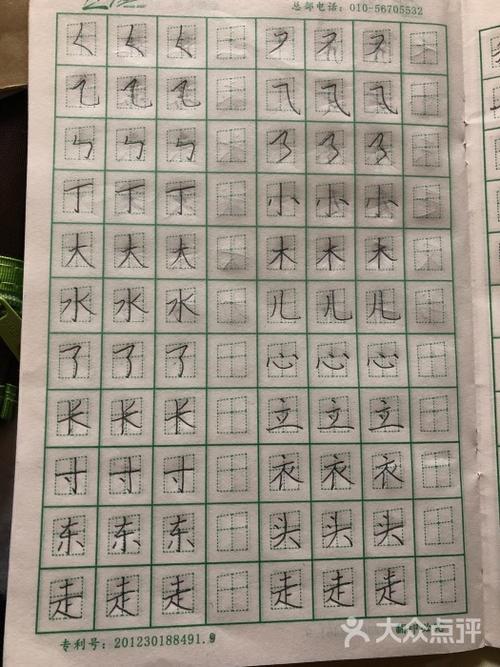 总部电话：010-56705532
丁 丁 丁 小 小 小
大 大 大 木 木 木
水 水 水 儿 儿 儿
了 了 了 心 心 心
长 长 长 立 立 立
寸 寸 寸 衣 衣 衣
东 东 东 头 头 头
走 走 走 走 走 走
专利号：201230188491.9
大众点评